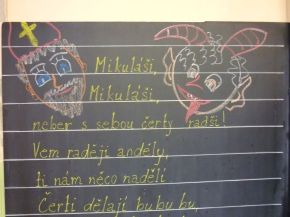 Mikuláši,
Mikuláši,
neber s sebou čerty radši!
Vem raději anděly,
ti nám něco nadělí.
Čerti dělají bu bu bu,